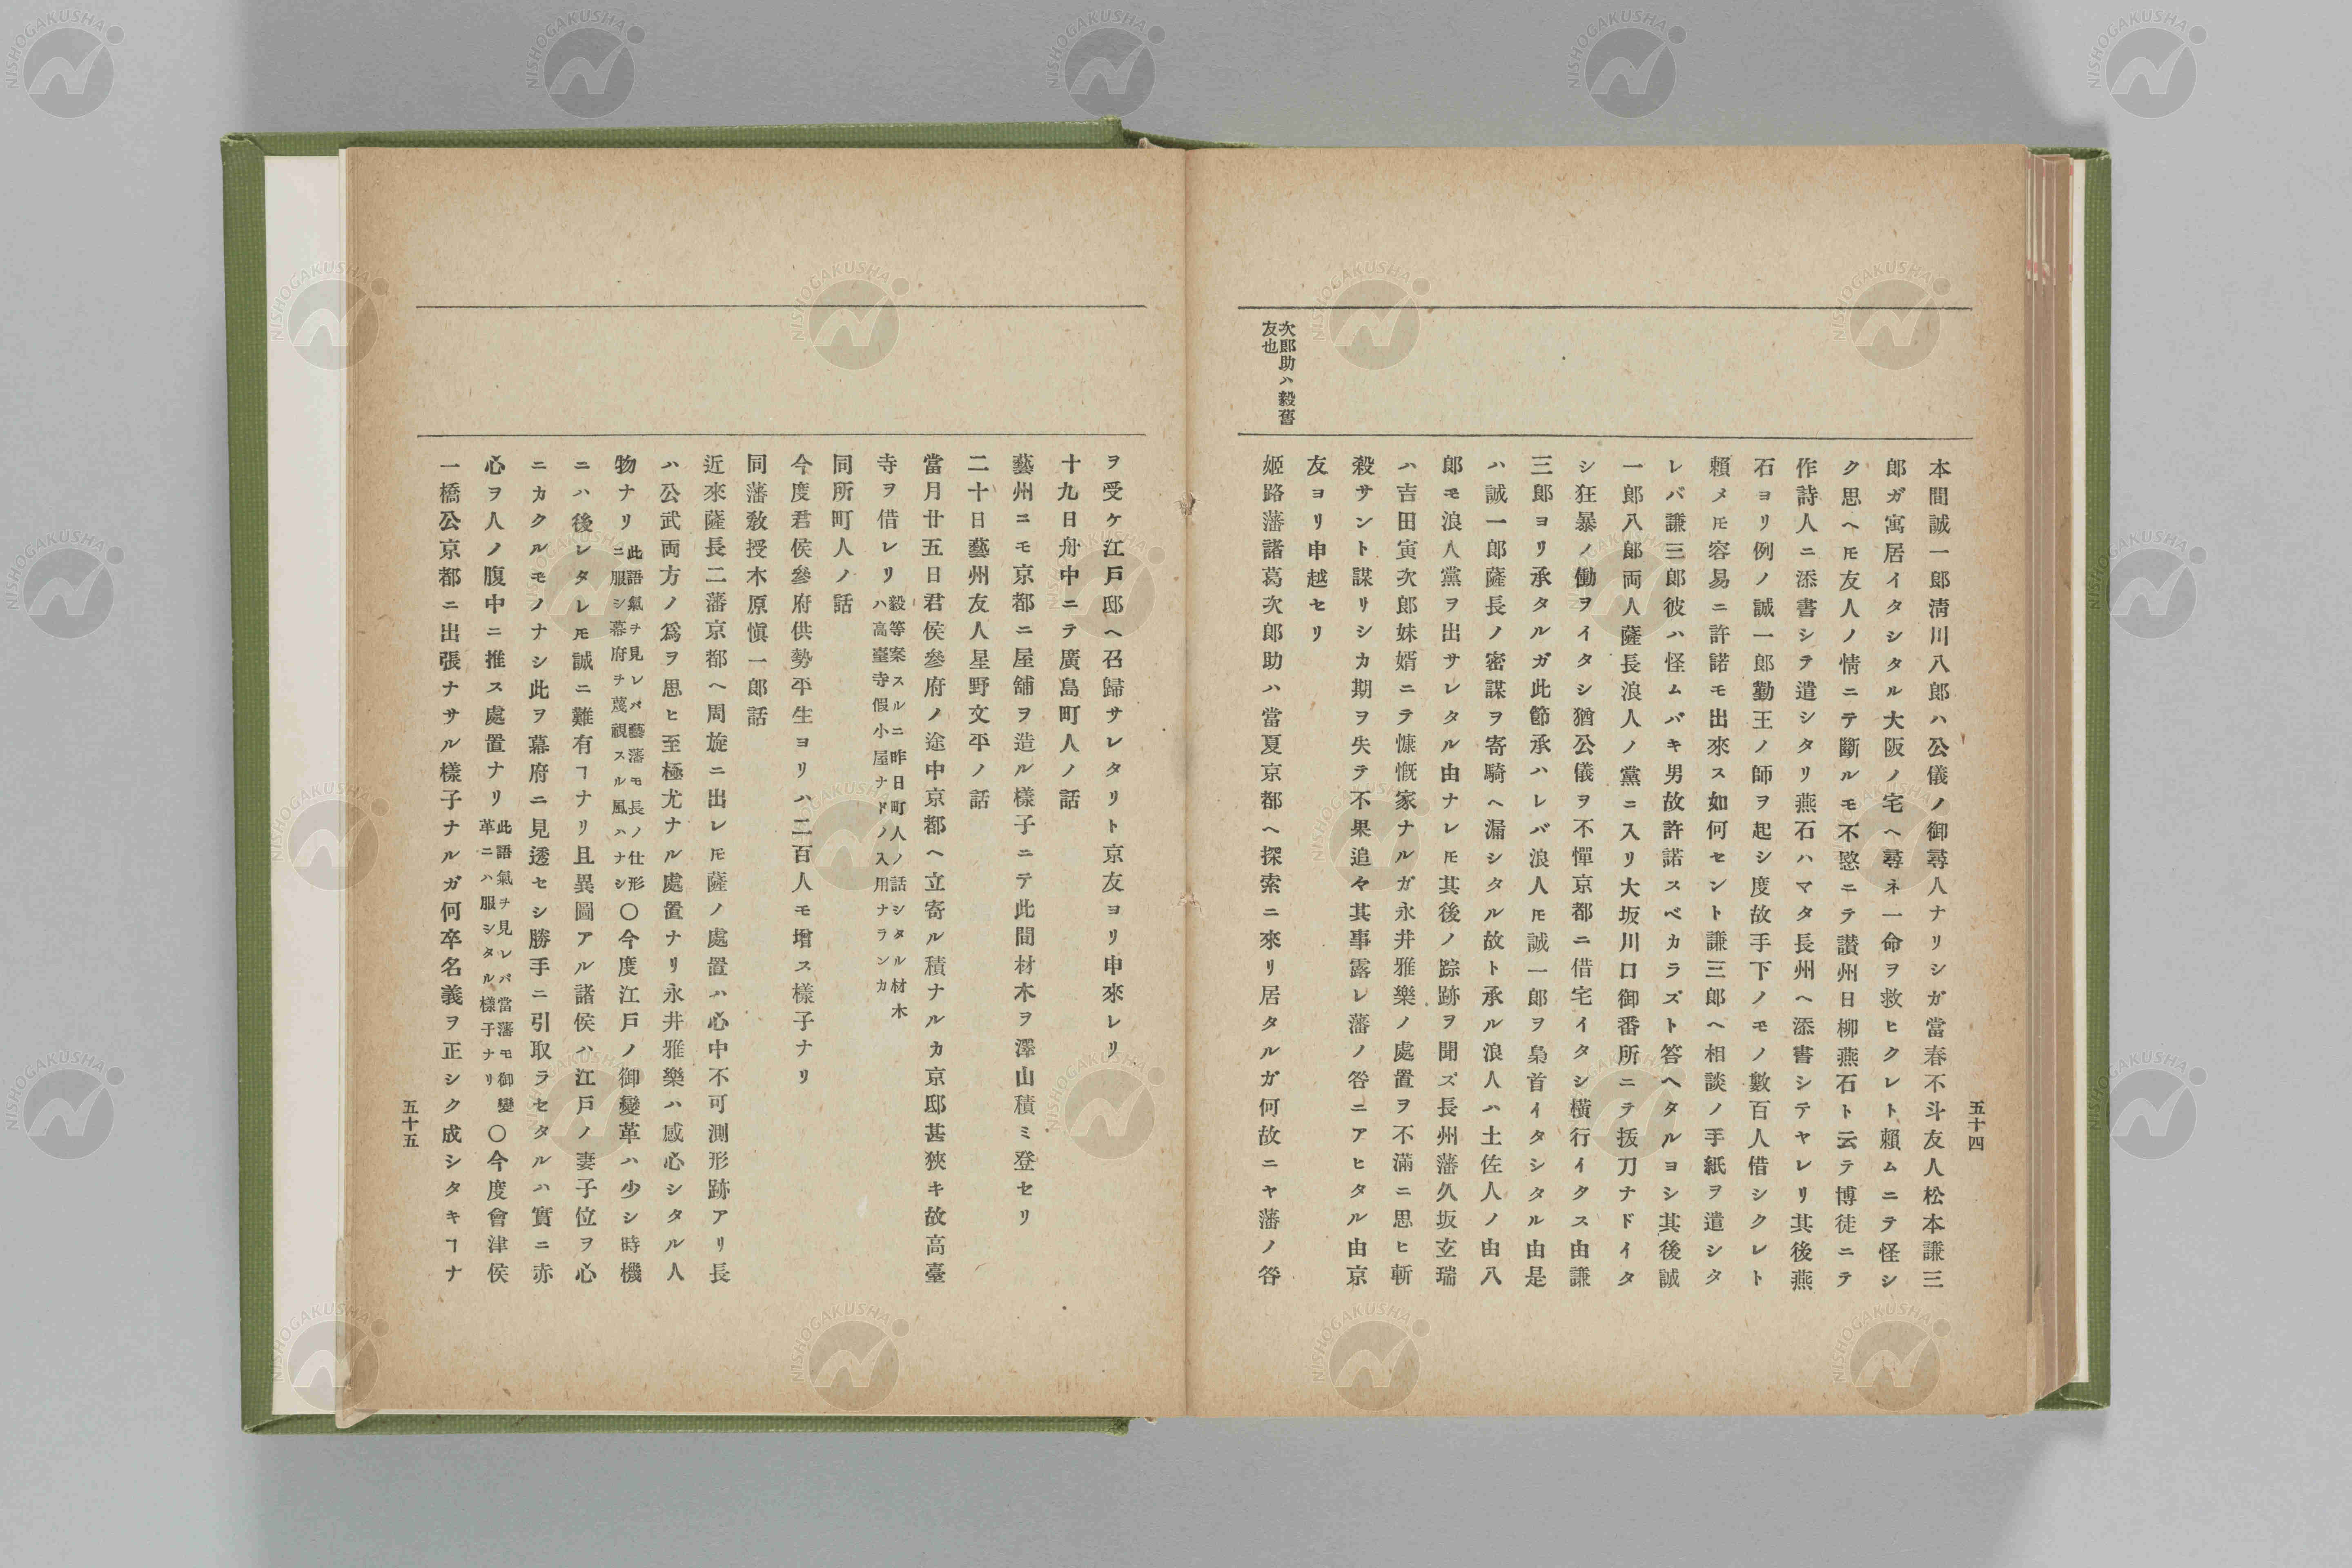 五十四
次郎助ハ毅舊
友也
本間誠一郎淸川八郎ハ公儀ノ御尋人ナリシガ當春不斗友人松本謙三
郎ガ寓居イタシタル大阪ノ宅ヘ尋ネ一命ヲ救ヒクレト賴ムニテ怪シ
ク思ヘ𪜈友人ノ情ニテ斷ルモ不愍ニテ讃州日柳燕石ト云テ博徒ニテ
作詩人ニ添書シテ遣シタリ燕石ハマタ長州ヘ添書シテヤレリ其後燕
石ヨリ例ノ誠一郎勤王ノ師ヲ起シ度故手下ノモノ數百人借シクレト
賴メ𪜈容易ニ許諾モ出來ス如何セント謙三郎ヘ相談ノ手紙ヲ遣シタ
レバ謙三郎彼ハ怪ムバキ男故許諾スベカラズト答ヘタルヨシ其後誠
一郎八郎両人薩長浪人ノ黨ニ入リ大坂川口御番所ニテ拔刀ナドイタ
シ狂暴ノ働ヲイタシ猶公儀ヲ不憚京都ニ借宅イタシ橫行イクス由謙
三郎ヨリ承タルガ此節承ハレバ浪人𪜈誠一郎ヲ梟首イタシタル由是
ハ誠一郎薩長ノ密謀ヲ寄騎ヘ漏シタル故ト承ル浪人ハ土佐人ノ由八
郎モ浪人黨ヲ出サレタル由ナレ𪜈其後ノ踪跡ヲ聞ズ長州藩久坂玄瑞
ハ吉田寅次郎妹婿ニテ慷慨家ナルガ永井雅樂ノ處置ヲ不滿ニ思ヒ斬
殺サント謀リシカ期ヲ失テ不果追々其事露レ藩ノ咎ニアヒタル由京
友ヨリ申越セリ
姬路藩諸葛次郎助ハ當夏京都ヘ探索ニ來リ居タルガ何故ニヤ藩ノ咎
ヲ受ケ江戸邸ヘ召歸サレタリト京友ヨリ申來レリ
十九日舟中ニテ廣島町人ノ話
藝州ニモ京都ニ屋舗ヲ造ル樣子ニテ此間材木ヲ澤山積ミ登セリ
二十日藝州友人星野文平ノ話
當月廿五日君侯參府ノ途中京都ヘ立寄ル積ナルカ京邸甚狹キ故高臺
寺ヲ借レリ
毅等案スルニ昨日町人ノ話シタル材木
ハ高臺寺假小屋ナドノ入用ナランカ
同所町人ノ話
今度君侯參府供勢平生ヨリハ二百人モ增ス樣子ナリ
同藩敎授木原愼一郞話
近來薩長二藩京都ヘ周旋ニ出レ𪜈薩ノ處置ハ心中不可測形跡アリ長
ハ公武両方ノ爲ヲ思ヒ至極尤ナル處置ナリ永井雅樂ハ感心シタル人
物ナリ
此語氣ヲ見レバ藝藩モ長ノ仕形
ニ服シ幕府ヲ蔑視スル風ハナシ
〇今度江戸ノ御變革ハ少シ時機
ニハ後レタレ𪜈誠ニ難有ヿナリ且異圖アル諸侯ハ江戸ノ妻子位ヲ心
ニカクルモノナシ此ヲ幕府ニ見透セシ勝手ニ引取ラセタルハ實ニ赤
心ヲ人ノ腹中ニ推ス處置ナリ
此語氣ヲ見レバ當藩モ御變
革ニハ服シタル樣子ナリ
〇今度會津侯
一橋公京都ニ出張ナサル樣子ナルガ何卒名義ヲ正シク成シタキヿナ
五十五
NISHOGAKUSHA